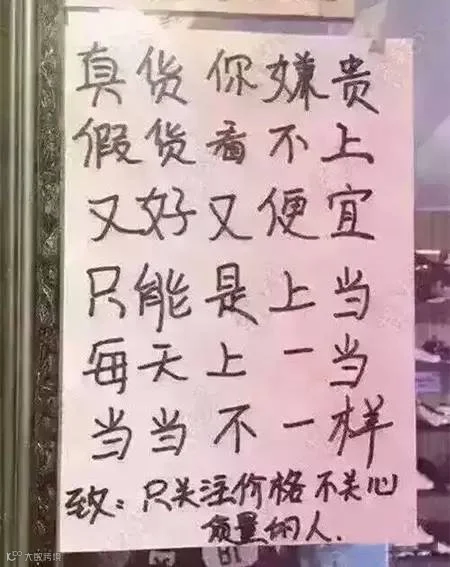 真货你嫌贵
假货看不上
又好又便宜
只能是上当
每天上一当
当当不一样
致：只关注价格不关心
质量的人.
大数跨境